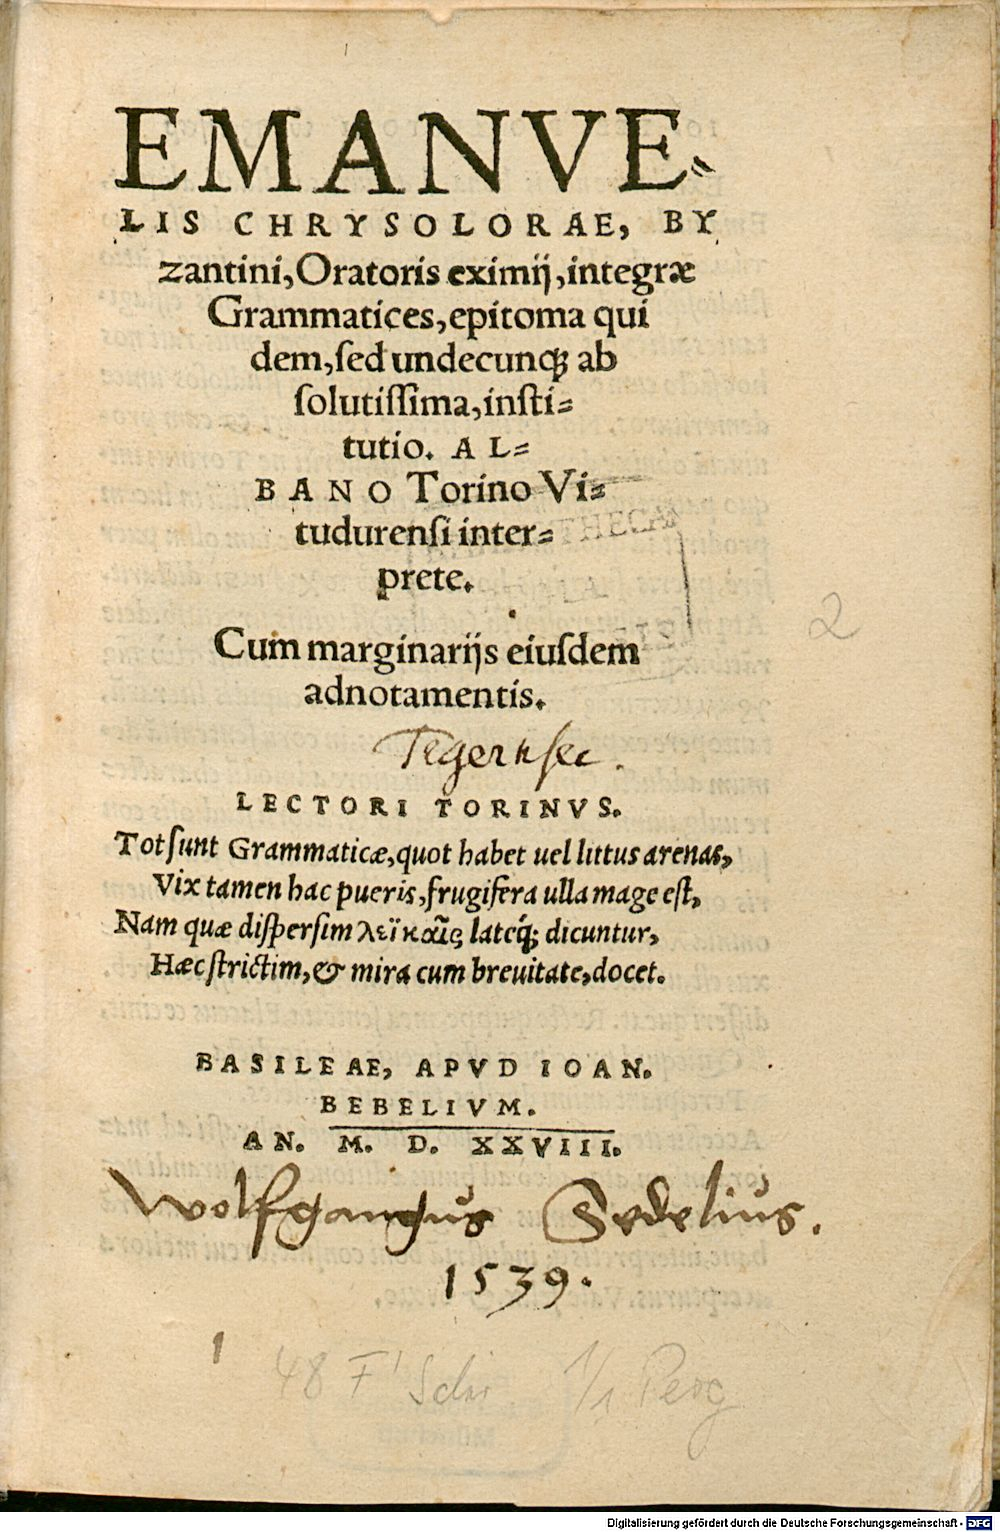 EMANVE⸗
LIS CHRYSOLORAE, BY
zantini, Oratoris eximij, integræ
Grammatices, epitoma qui
dem, ſed undecunqꝫ ab
ſolutiſſima, inſti⸗
tutio. AL⸗
BANO Torino Vi⸗
tudurenſi inter⸗
prete.
Cum marginarijs eiuſdem
adnotamentis.
Tegernsee.
LECTORI TORINVS.
Tot ſunt Grammaticæ, quot habet uel littus arenas,
Vix tamen hac pueris, frugifera ulla mage eſt,
Nam quæ diſperſim λεϊκαῖς latéqꝫ dicuntur,
Hæc ſtrictim, & mira cum breuitate, docet.
BASILEAE, APVD IOAN.
BEBELIVM.
AN. M. D. XXVIII.
Wolfgangus Sedelius.
1539.
2
1
48 F'
1/1 Perg
Digitalisierung gefördert durch die Deutsche Forschungsgemeinschaft - DFG